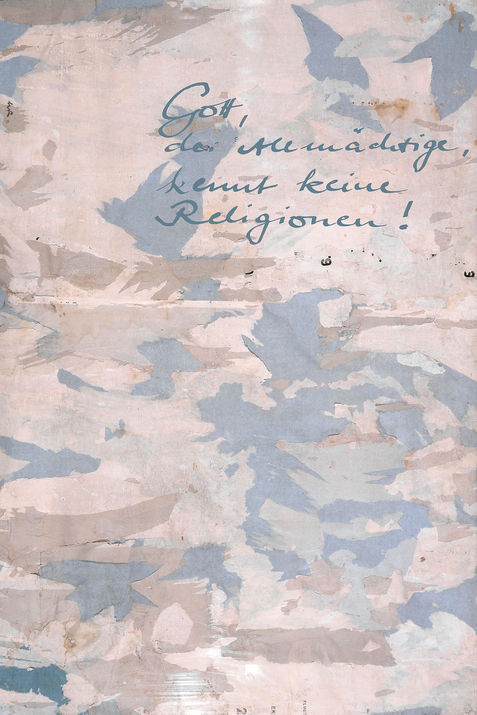 Gott,
der Allmächtige,
kennt keine
Religionen!